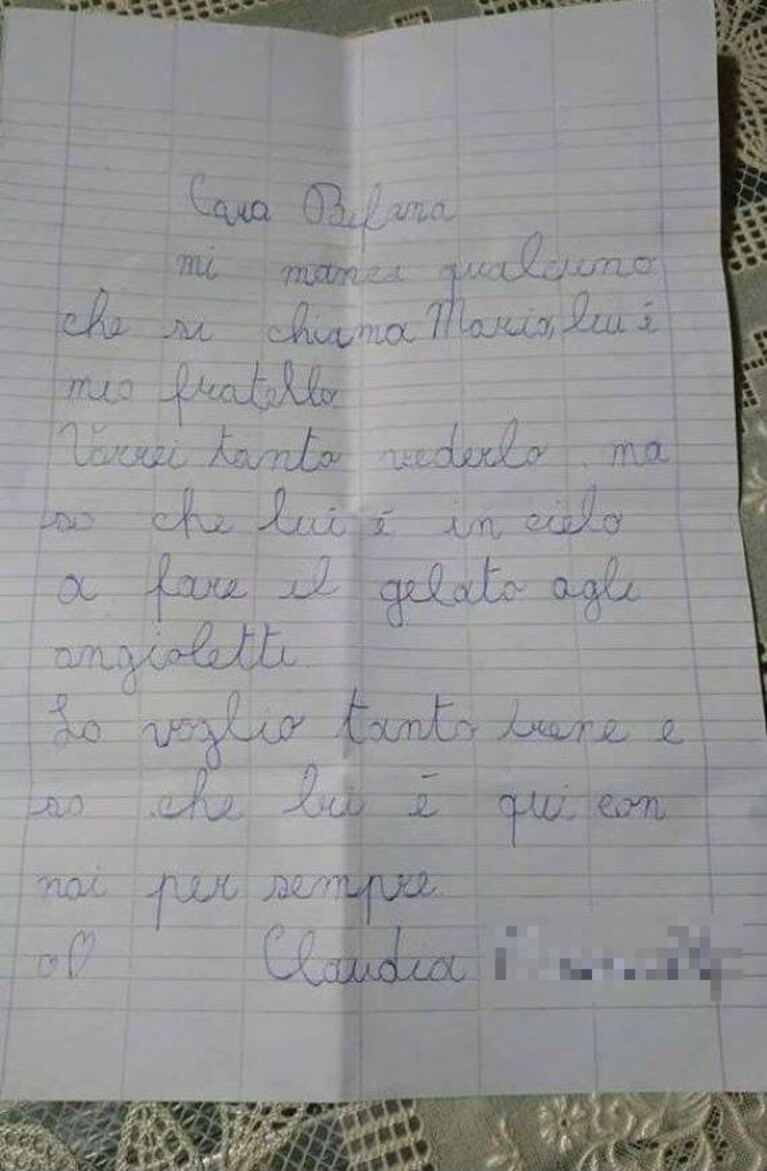 Cara Befana
mi manca qualcuno
che si chiama Mario, lui è
mio fratello
Vorrei tanto vederlo ma
so che lui è in cielo
a fare il gelato agli
angioletti
Lo voglio tanto bene e
so che lui è qui con
noi per sempre.
Claudia